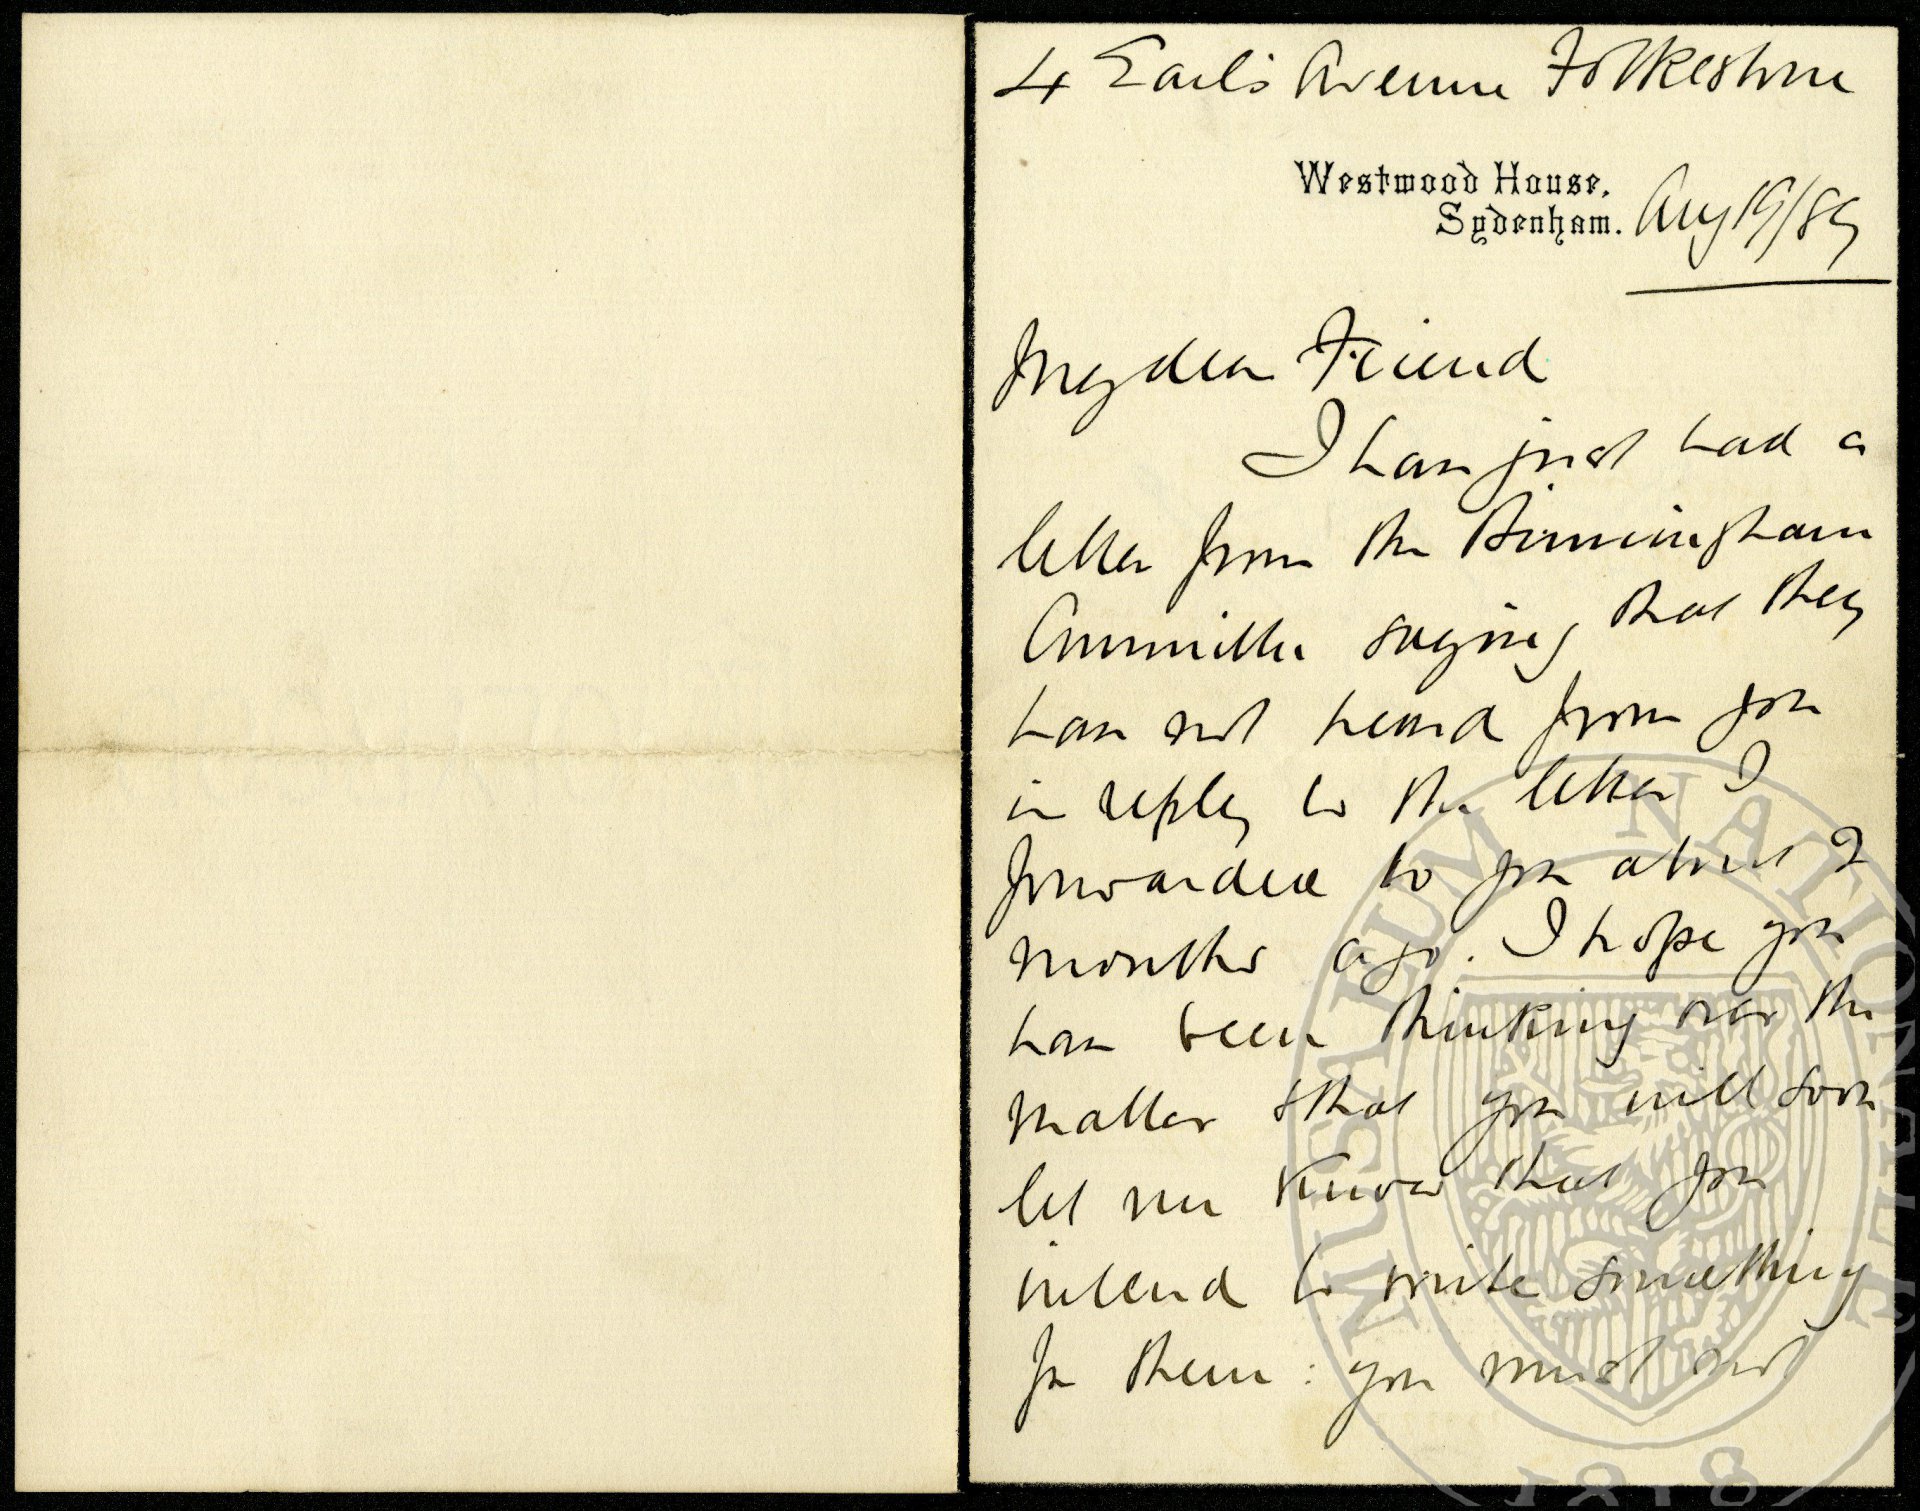 4 Earl's Avenue Folkestone
Westwood House,
Sydenham.
Aug 19/89
My dear Friend
I have just had a
letter from the Birmingham
Committee saying that they
have not heard from you
in reply to the letter I
forwarded to you about 2
months ago. I hope you
have been thinking over the
matter & that you will soon
let me know that you
intend to write something
for them: you must not
MUSAEUM NATIONALE
1818